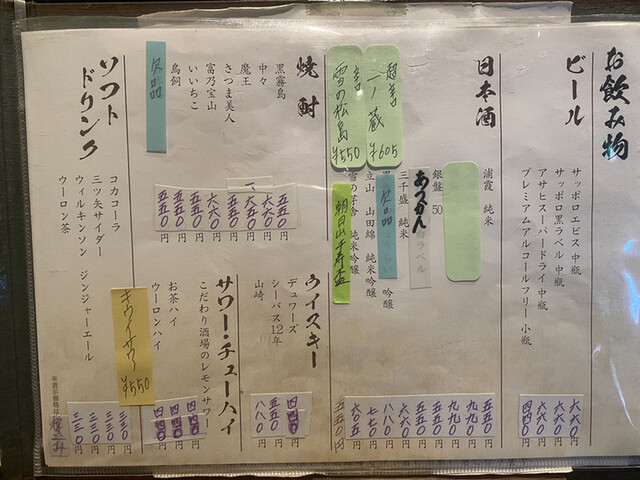 お飲み物
ビール
サッポロエビス 中瓶
サッポロ黒ラベル 中瓶
アサヒスーパードライ 中瓶
プレミアムアルコールフリー 小瓶
六六〇円
六六〇円
六六〇円
四四〇円
日本酒
浦霞 純米
あつかん
ラベル
銀盤 50
三千盛 純米
欠品
吟醸
立山 山田錦 純米吟醸
雪の茅舎 純米吟醸
朝日山千寿盃
超辛口
一ノ蔵
¥605
辛口
雪の松島
¥550
五五〇円
九九〇円
九九〇円
五五〇円
五五〇円
六六〇円
八八〇円
七七〇円
六〇五円
五五〇円
焼酎
黒霧島
中々
魔王
さつま美人
いいちこ
富乃宝山
鳥飼
欠品
五五〇円
五五〇円
六六〇円
五五〇円
五五〇円
五五〇円
ウイスキー
デュワーズ
シーバス12年
山崎
四四〇円
五五〇円
八八〇円
サワー・チューハイ
こだわり酒場のレモンサワー
お茶ハイ
ウーロンハイ
キウイサワー
¥550
四四〇円
四四〇円
四四〇円
ソフトドリンク
コカコーラ
三ツ矢サイダー
ウィルキンソン ジンジャーエール
ウーロン茶
三三〇円
三三〇円
三三〇円
三三〇円
※表示価格は税込み